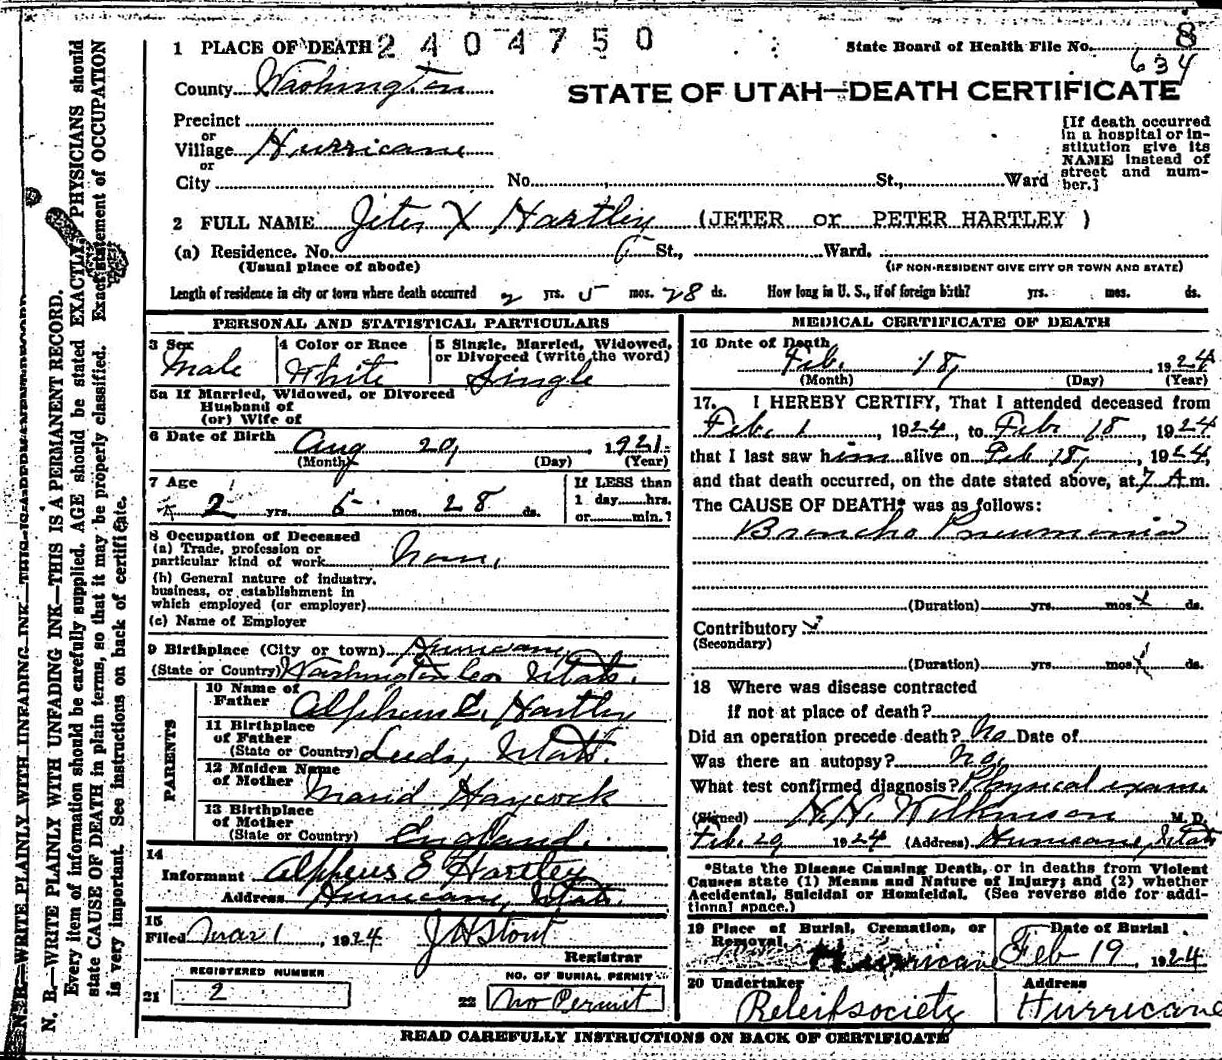 1 PLACE OF DEATH 2404750
State Board of Health File No. 8
634
County Washington
STATE OF UTAH—DEATH CERTIFICATE
Precinct
or
Village Hurricane
or
City No. St., Ward
[If death occurred
in a hospital or in-
stitution give its
NAME instead of
street and num-
ber.]
2 FULL NAME Jeter X Hartley (JETER or PETER HARTLEY )
(a) Residence. No. St., Ward.
(Usual place of abode) (IF NON-RESIDENT GIVE CITY OR TOWN AND STATE)
Length of residence in city or town where death occurred 2 yrs. 5 mos. 28 ds. How long in U. S., if of foreign birth? yrs. mos. ds.
PERSONAL AND STATISTICAL PARTICULARS
3 Sex
Male
4 Color or Race
White
5 Single, Married, Widowed,
or Divorced (write the word)
Single
5a If Married, Widowed, or Divorced
Husband of
(or) Wife of
6 Date of Birth Aug 20, 1921
(Month) (Day) (Year)
7 Age 2 yrs. 5 mos. 28 ds.
If LESS than
1 day hrs.
or min.?
8 Occupation of Deceased
(a) Trade, profession or
particular kind of work None,
(b) General nature of industry,
business, or establishment in
which employed (or employer)
(c) Name of Employer
9 Birthplace (City or town) Hurricane,
(State or Country) Washington Co Utah.
PARENTS
10 Name of
Father Alpheus E. Hartley
11 Birthplace
of Father
(State or Country) Leeds, Utah.
12 Maiden Name
of Mother Maud Haycock
13 Birthplace
of Mother
(State or Country) England.
14
Informant Alpheus E Hartley
Address Hurricane, Utah.
15
Filed Mar 1, 1924 J H Stout
Registrar
REGISTERED NUMBER
21 2
NO. OF BURIAL PERMIT
22 No Permit
MEDICAL CERTIFICATE OF DEATH
16 Date of Death
Feb. 18, 1924
(Month) (Day) (Year)
17. I HEREBY CERTIFY, That I attended deceased from
Feb. 1, 1924, to Feb 18, 1924
that I last saw him alive on Feb 18, 1924,
and that death occurred, on the date stated above, at 7 A.m.
The CAUSE OF DEATH* was as follows:
Broncho Pneumonia
(Duration) yrs. mos. ds.
Contributory
(Secondary)
(Duration) yrs. mos. ds.
18 Where was disease contracted
if not at place of death?
Did an operation precede death? No Date of
Was there an autopsy? No,
What test confirmed diagnosis? Physical exam.
(Signed) H. H. Wilkinson M. D.
Feb. 29 1924 (Address) Hurricane, Utah
*State the Disease Causing Death, or in deaths from Violent
Causes state (1) Means and Nature of Injury; and (2) whether
Accidental, Suicidal or Homicidal. (See reverse side for addi-
tional space.)
19 Place of Burial, Cremation, or
Removal
Hurricane
Date of Burial
Feb 19 1924
20 Undertaker
Releif society
Address
Hurricane
READ CAREFULLY INSTRUCTIONS ON BACK OF CERTIFICATE
N. B.—WRITE PLAINLY WITH UNFADING INK—THIS IS A PERMANENT RECORD.
Every item of information should be carefully supplied. AGE should be stated EXACTLY. PHYSICIANS should
state CAUSE OF DEATH in plain terms, so that it may be properly classified. Exact statement of OCCUPATION
is very important. See instructions on back of certificate.